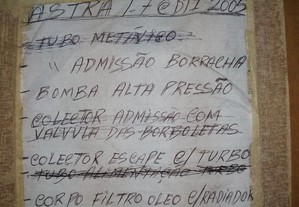 ASTRA 1.7 CDTI 2005
TUBO METÁLICO
" ADMISSÃO BORRACHA
- BOMBA ALTA PRESSÃO
- COLECTOR ADMISSÃO COM
VALVULA DAS BORBOLETAS
- COLECTOR ESCAPE C/ TURBO
- TUBO ALIMENTAÇÃO TURBO
- CORPO FILTRO OLEO C/RADIADOR